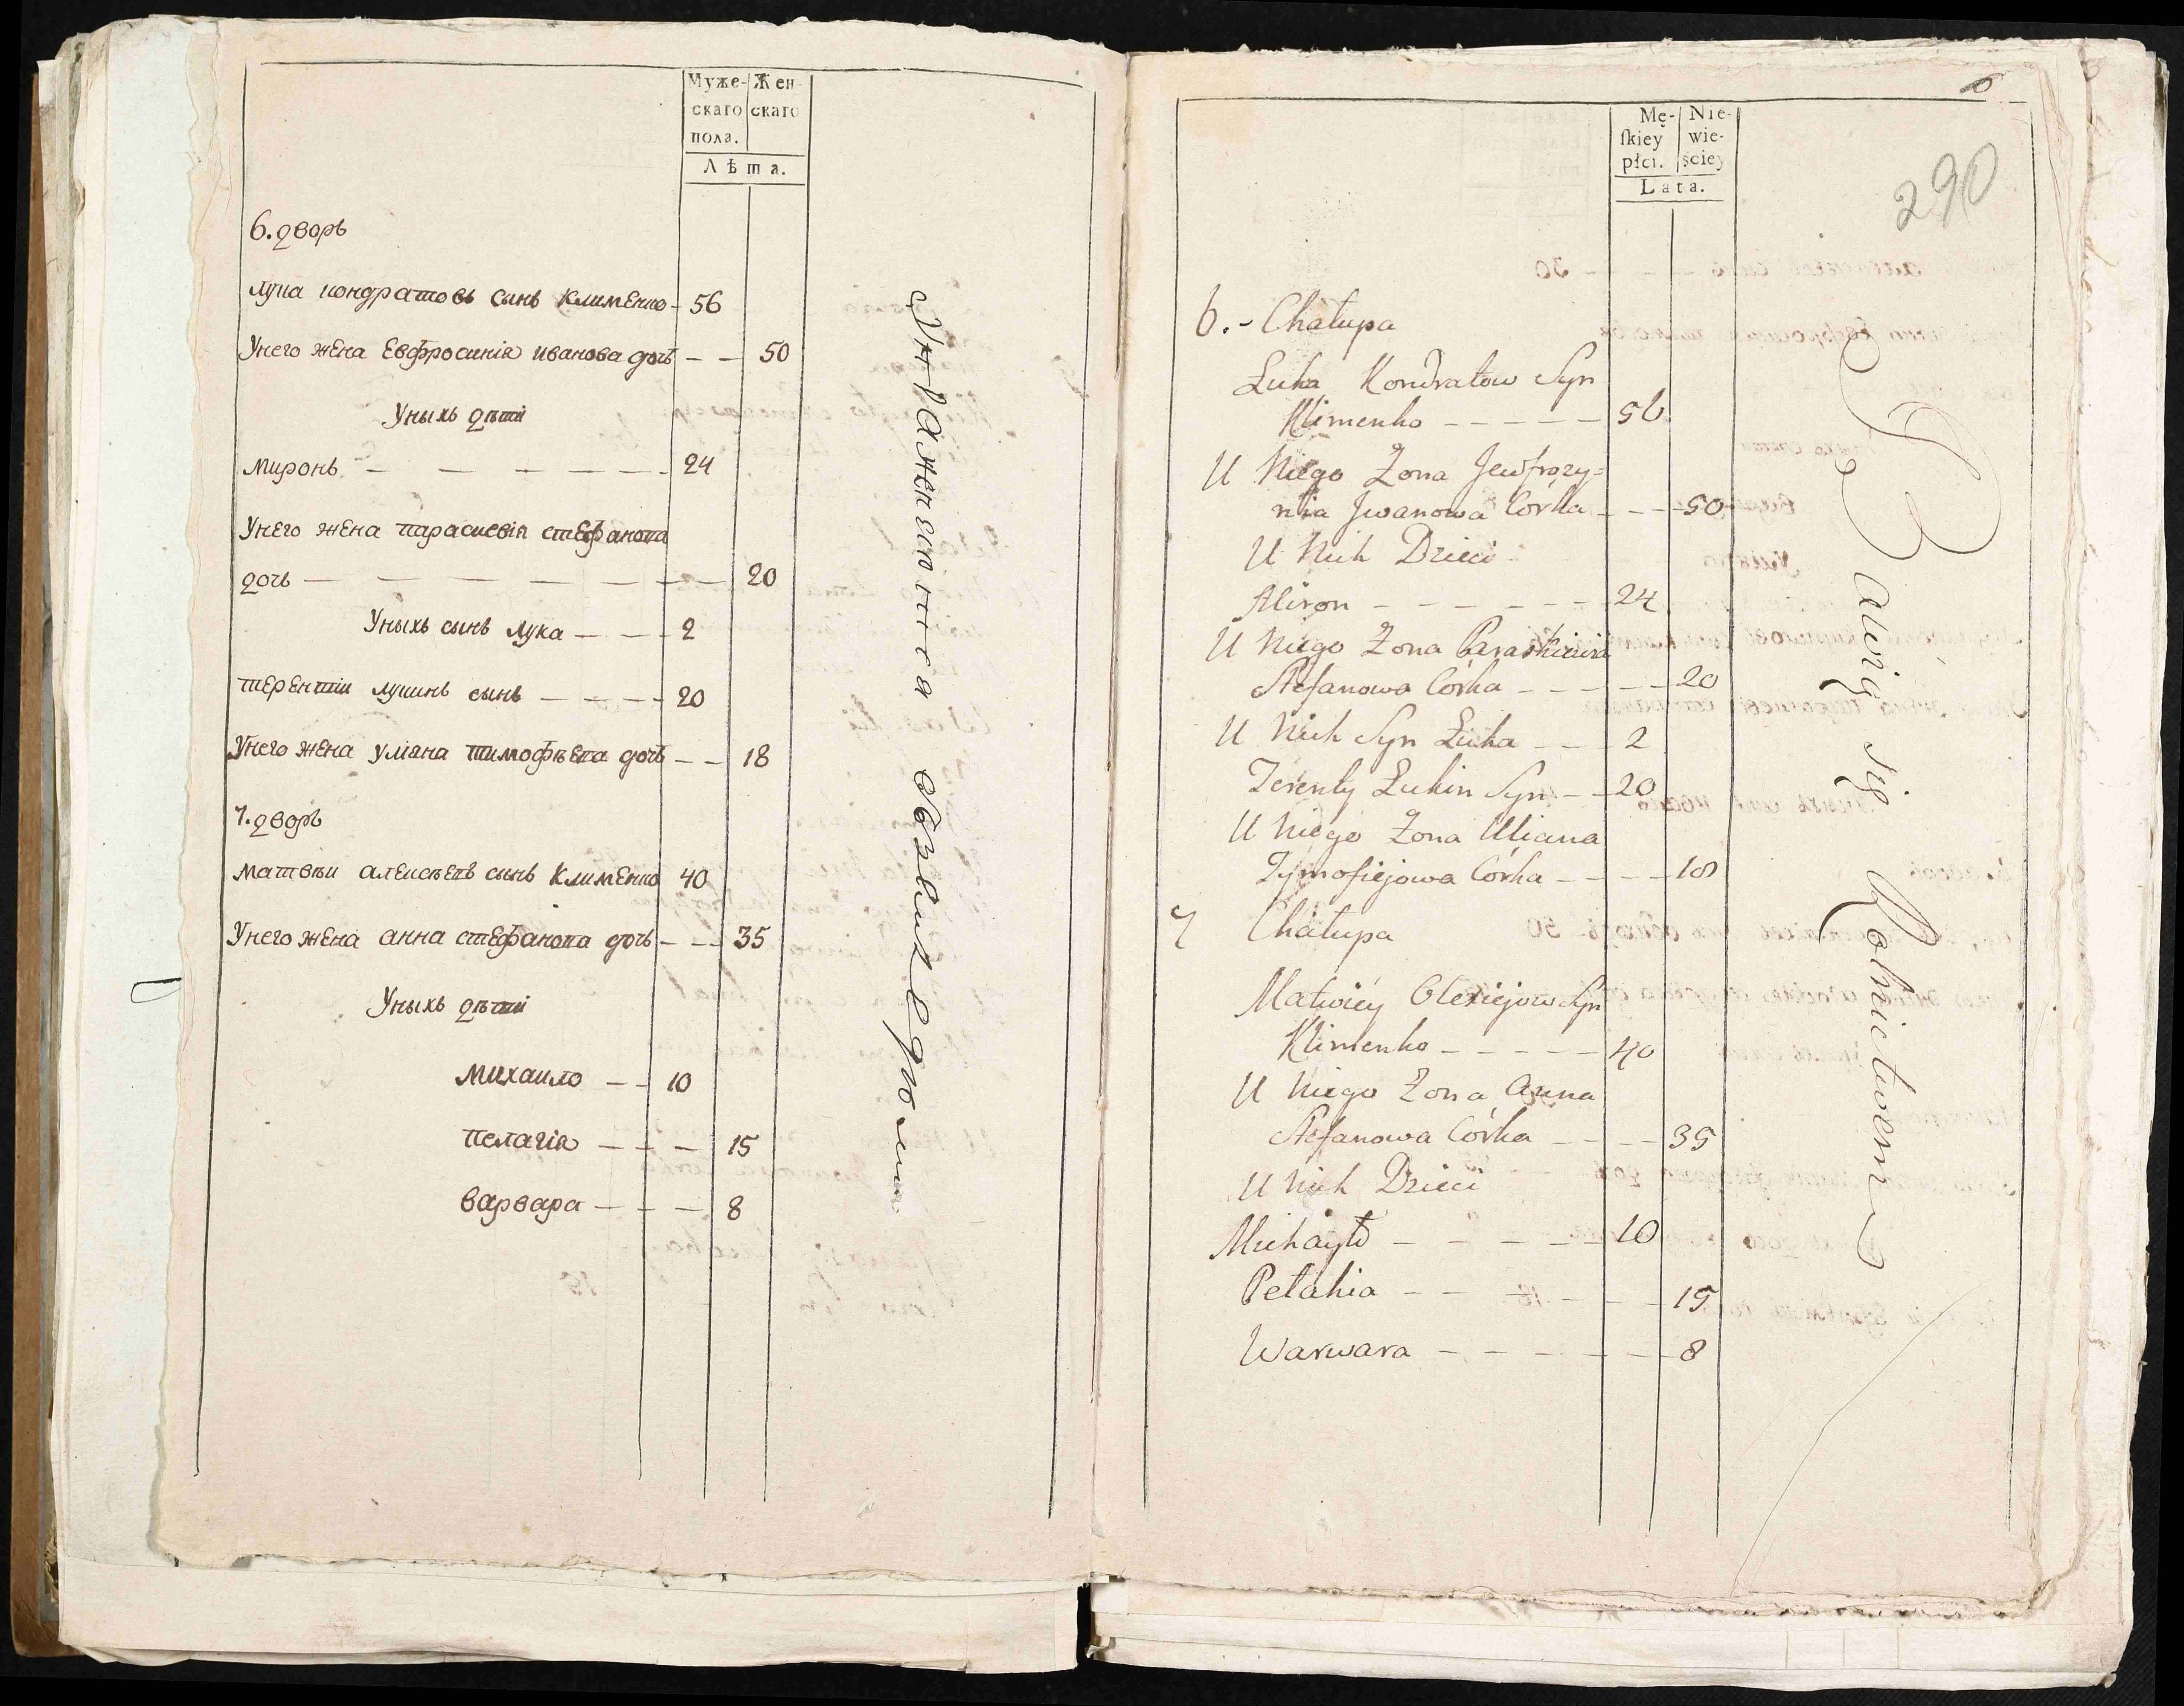 Муже-
скаго
пола.
Жен-
скаго
Лѣта.
6. дворъ
лука кондратовъ сынъ клименко - 56
Унего жена Евфросиніа иванова дочь — — 50
Уныхъ дѣти
миронъ — — — — — — 24
Унего жена параскевіа стефанова
дочь — — — — — — — 20
Уныхъ сынъ лука — — - 2
терентіи лукинъ сынъ — — — - 20
Унего жена уліана тимофѣева дочь — — 18
7. дворъ
матвѣи алексѣевъ сынъ клименко 40
Унего жена анна стефанова дочь - — — 35
Уныхъ дѣти
михаило — - 10
пелагіа — — — 15
варвара — — — 8
Упражнеются
6
290
Mę-
ſkiey
płci.
Nie-
wie-
ściey
Lata.
6. - Chałupa
Łuka Kondratow Syn
Klimenko - - - - - 56
U Niego Żona Jewfrozy=
nia Jwanowa Córka - - - 50
U Nich Dzieci
Miron - - - - - - 24
U Niego Żona Paraskiewia
Stefanowa Córka - - - - - 20
U Nich Syn Łuka - - - 2
Terenty Łukin Syn - - 20
U Niego Żona Uliana
Tymofiejowa Córka - - - - 18
7 Chałupa
Matwiey Olexiejow Syn
Klimenko - - - - - 40
U Niego Żona Anna
Stefanowa Córka - - - - 35
U Nich Dzieci
Michayło - - - - - 10
Pełahia - - - - - - 15
Warwara - - - - - - 8
Bawią się Rolnictwem